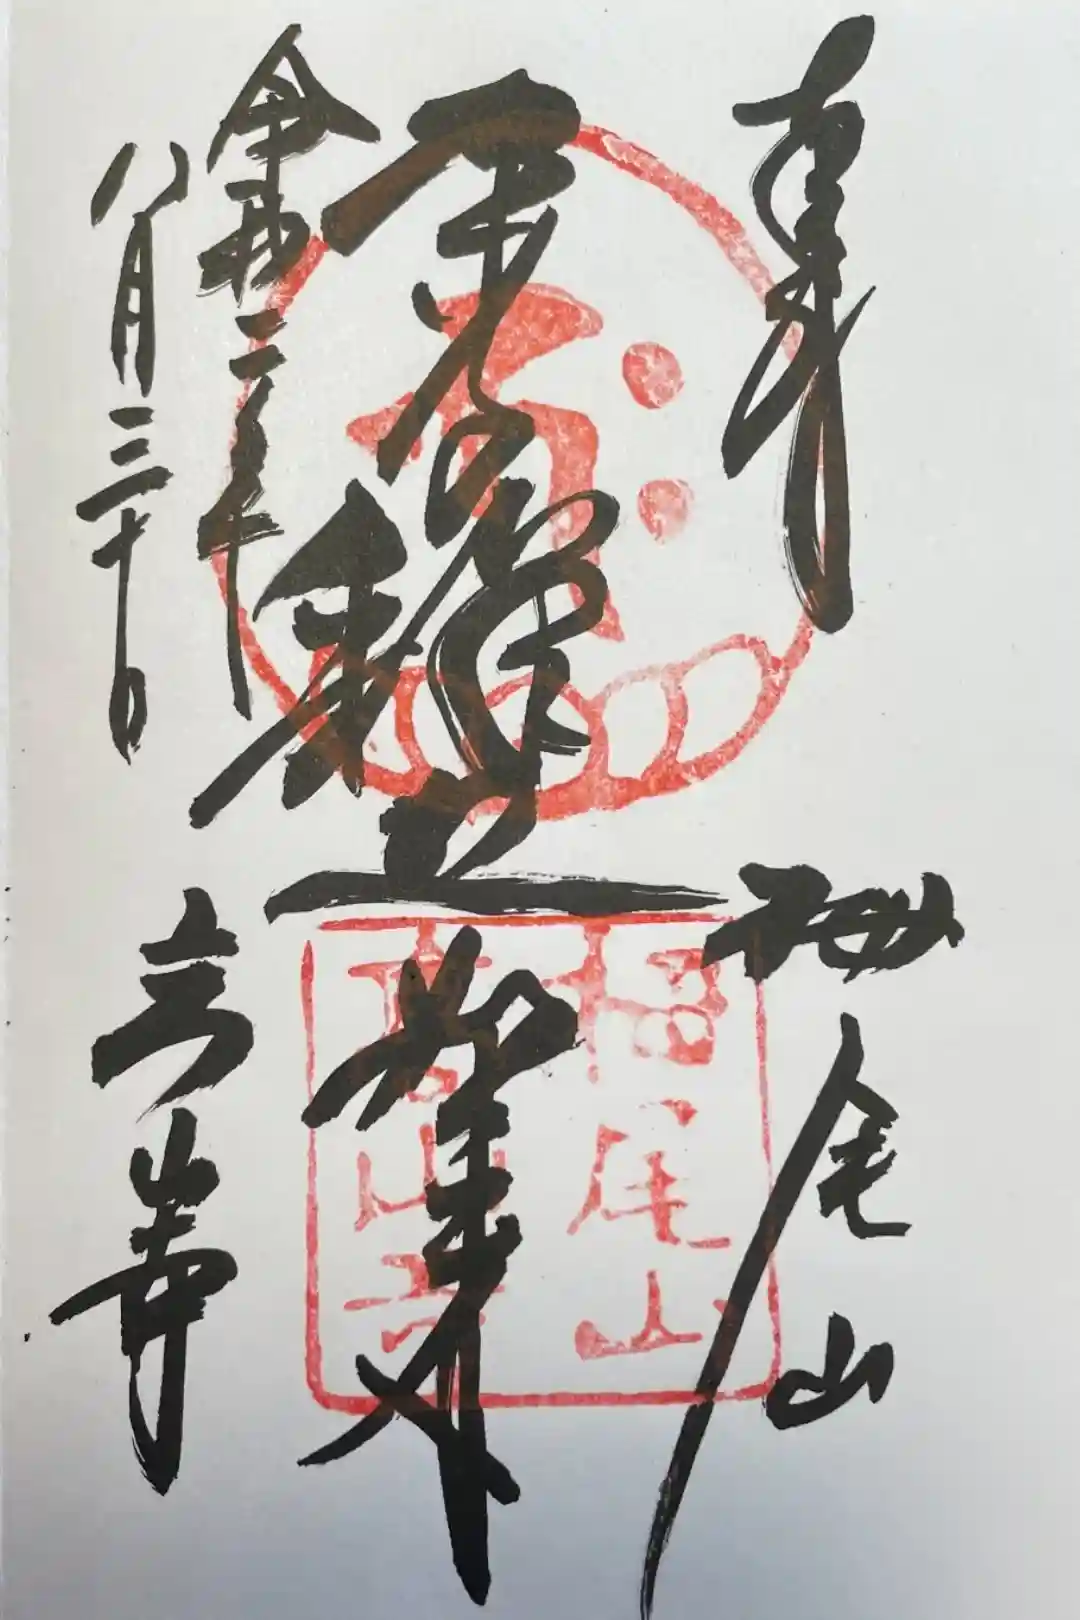 奉拝
栂尾山
釋迦如来
令和二年
八月三十日
高山寺
栂尾山
高山寺